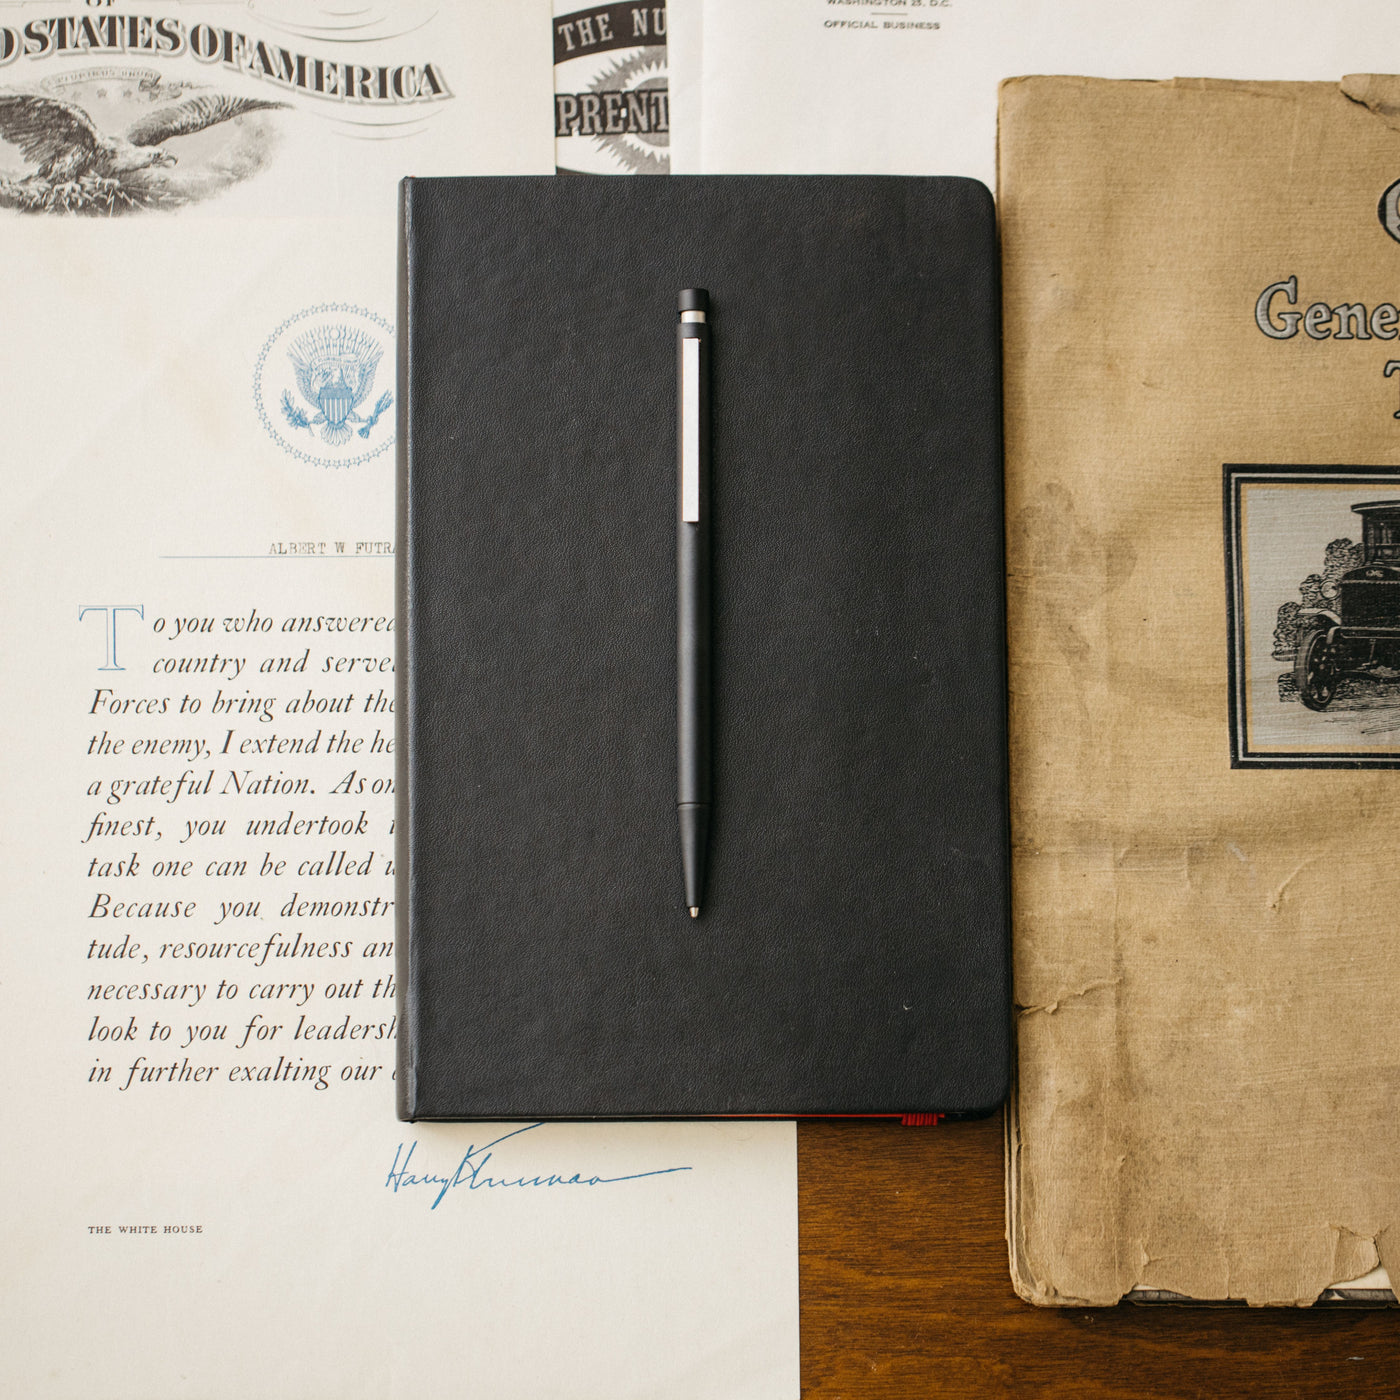 OF
STATES OF AMERICA
E PLURIBUS UNUM
THE
PRENT
WASHINGTON 25, D.C.
OFFICIAL BUSINESS
ALBERT W FUTRA
To you who answered
country and serve
Forces to bring about the
the enemy, I extend the he
a grateful Nation. As on
finest, you undertook
task one can be called u
Because you demonstr
tude, resourcefulness an
necessary to carry out th
look to you for leadersh
in further exalting our
Harry S Truman
THE WHITE HOUSE
Gene